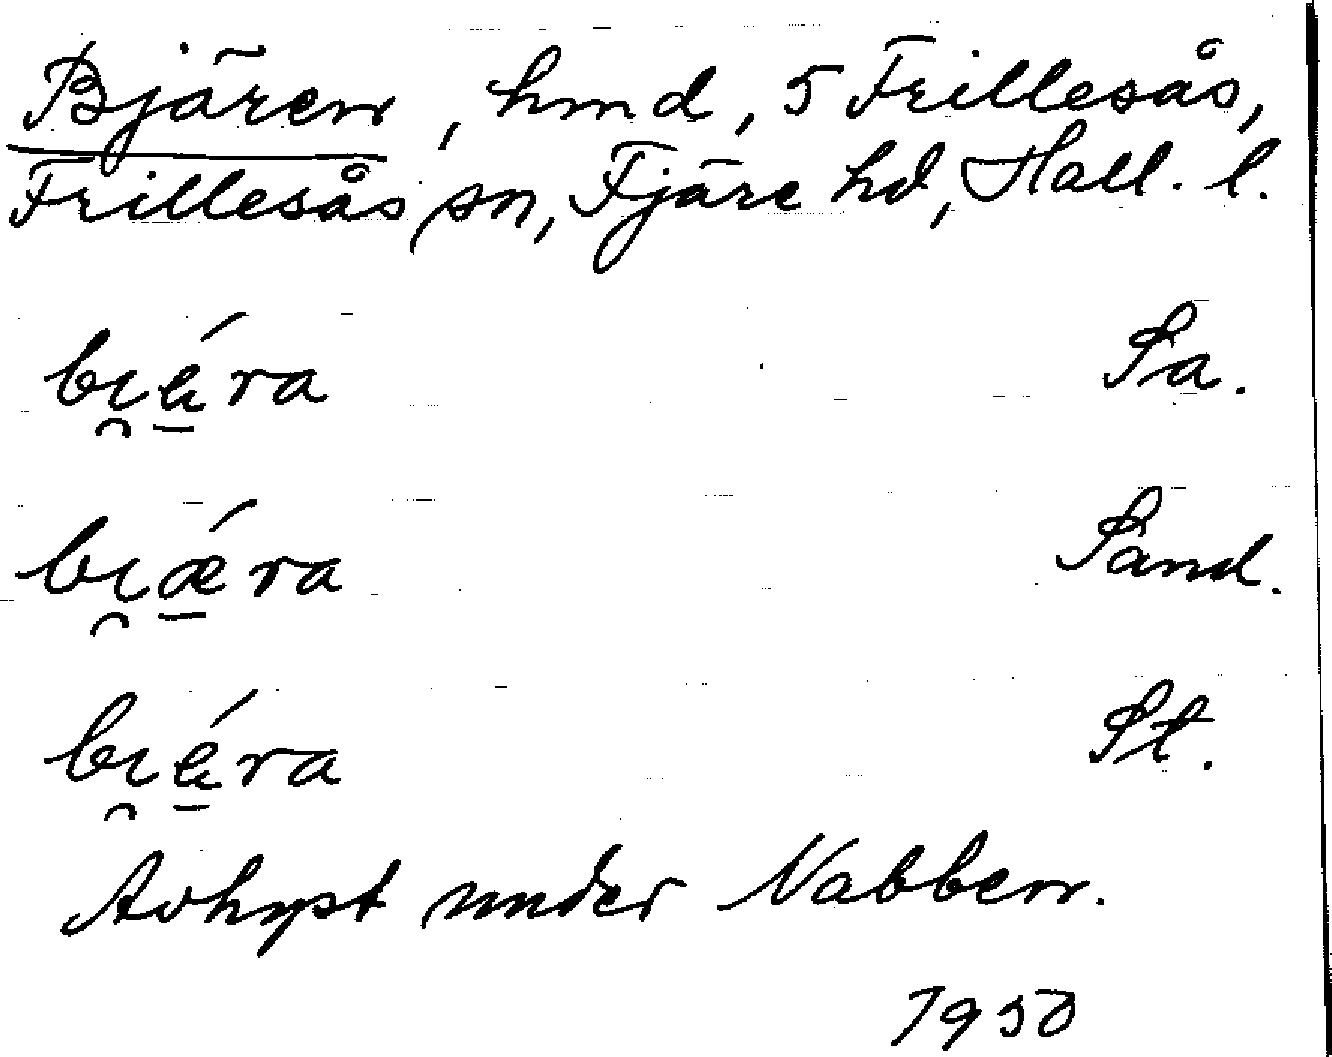 Bjären, hmd, 5 Frillesås,
Frillesås sn, Fjäre hd, Hall. l.
bi̯ä́ra Sa.
bi̯ǽra Sand.
bi̯ä́ra St.
Avhyst under Nabben.
1950